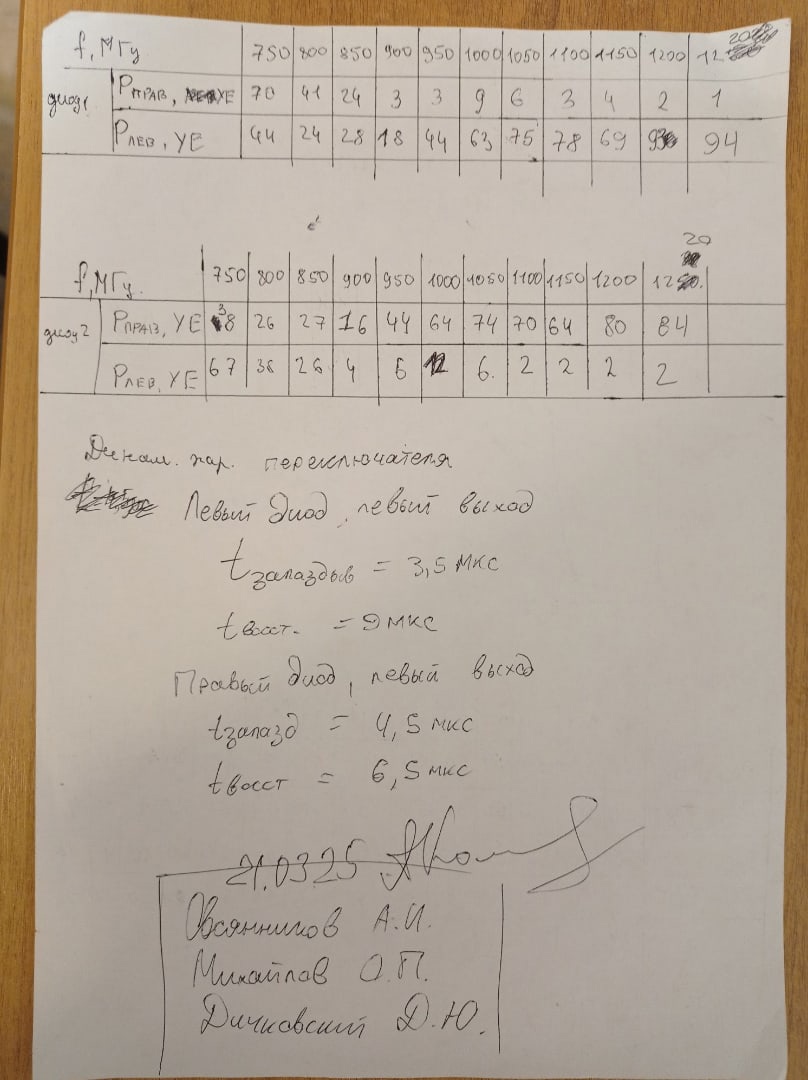 f, МГц 750 800 850 900 950 1000 1050 1100 1150 1200 1220
диод1 Pправ, УЕ 70 41 24 3 3 9 6 3 4 2 1
Pлев, УЕ 44 24 28 18 44 63 75 78 69 93 94
f, МГц. 750 800 850 900 950 1000 1050 1100 1150 1200 1220
диод2 Pправ, УЕ 38 26 27 16 44 64 74 70 64 80 84
Pлев, УЕ 67 36 26 4 6 12 6. 2 2 2 2
Динам. хар. переключателя
Левый диод, левый выход
tзапаздыв = 3,5 мкс
tвосст. = 9 мкс
Правый диод, левый выход
tзапазд = 4,5 мкс
tвосст = 6,5 мкс
21.03.25
Овсянников А.И.
Михайлов О.П.
Дичковский Д.Ю.